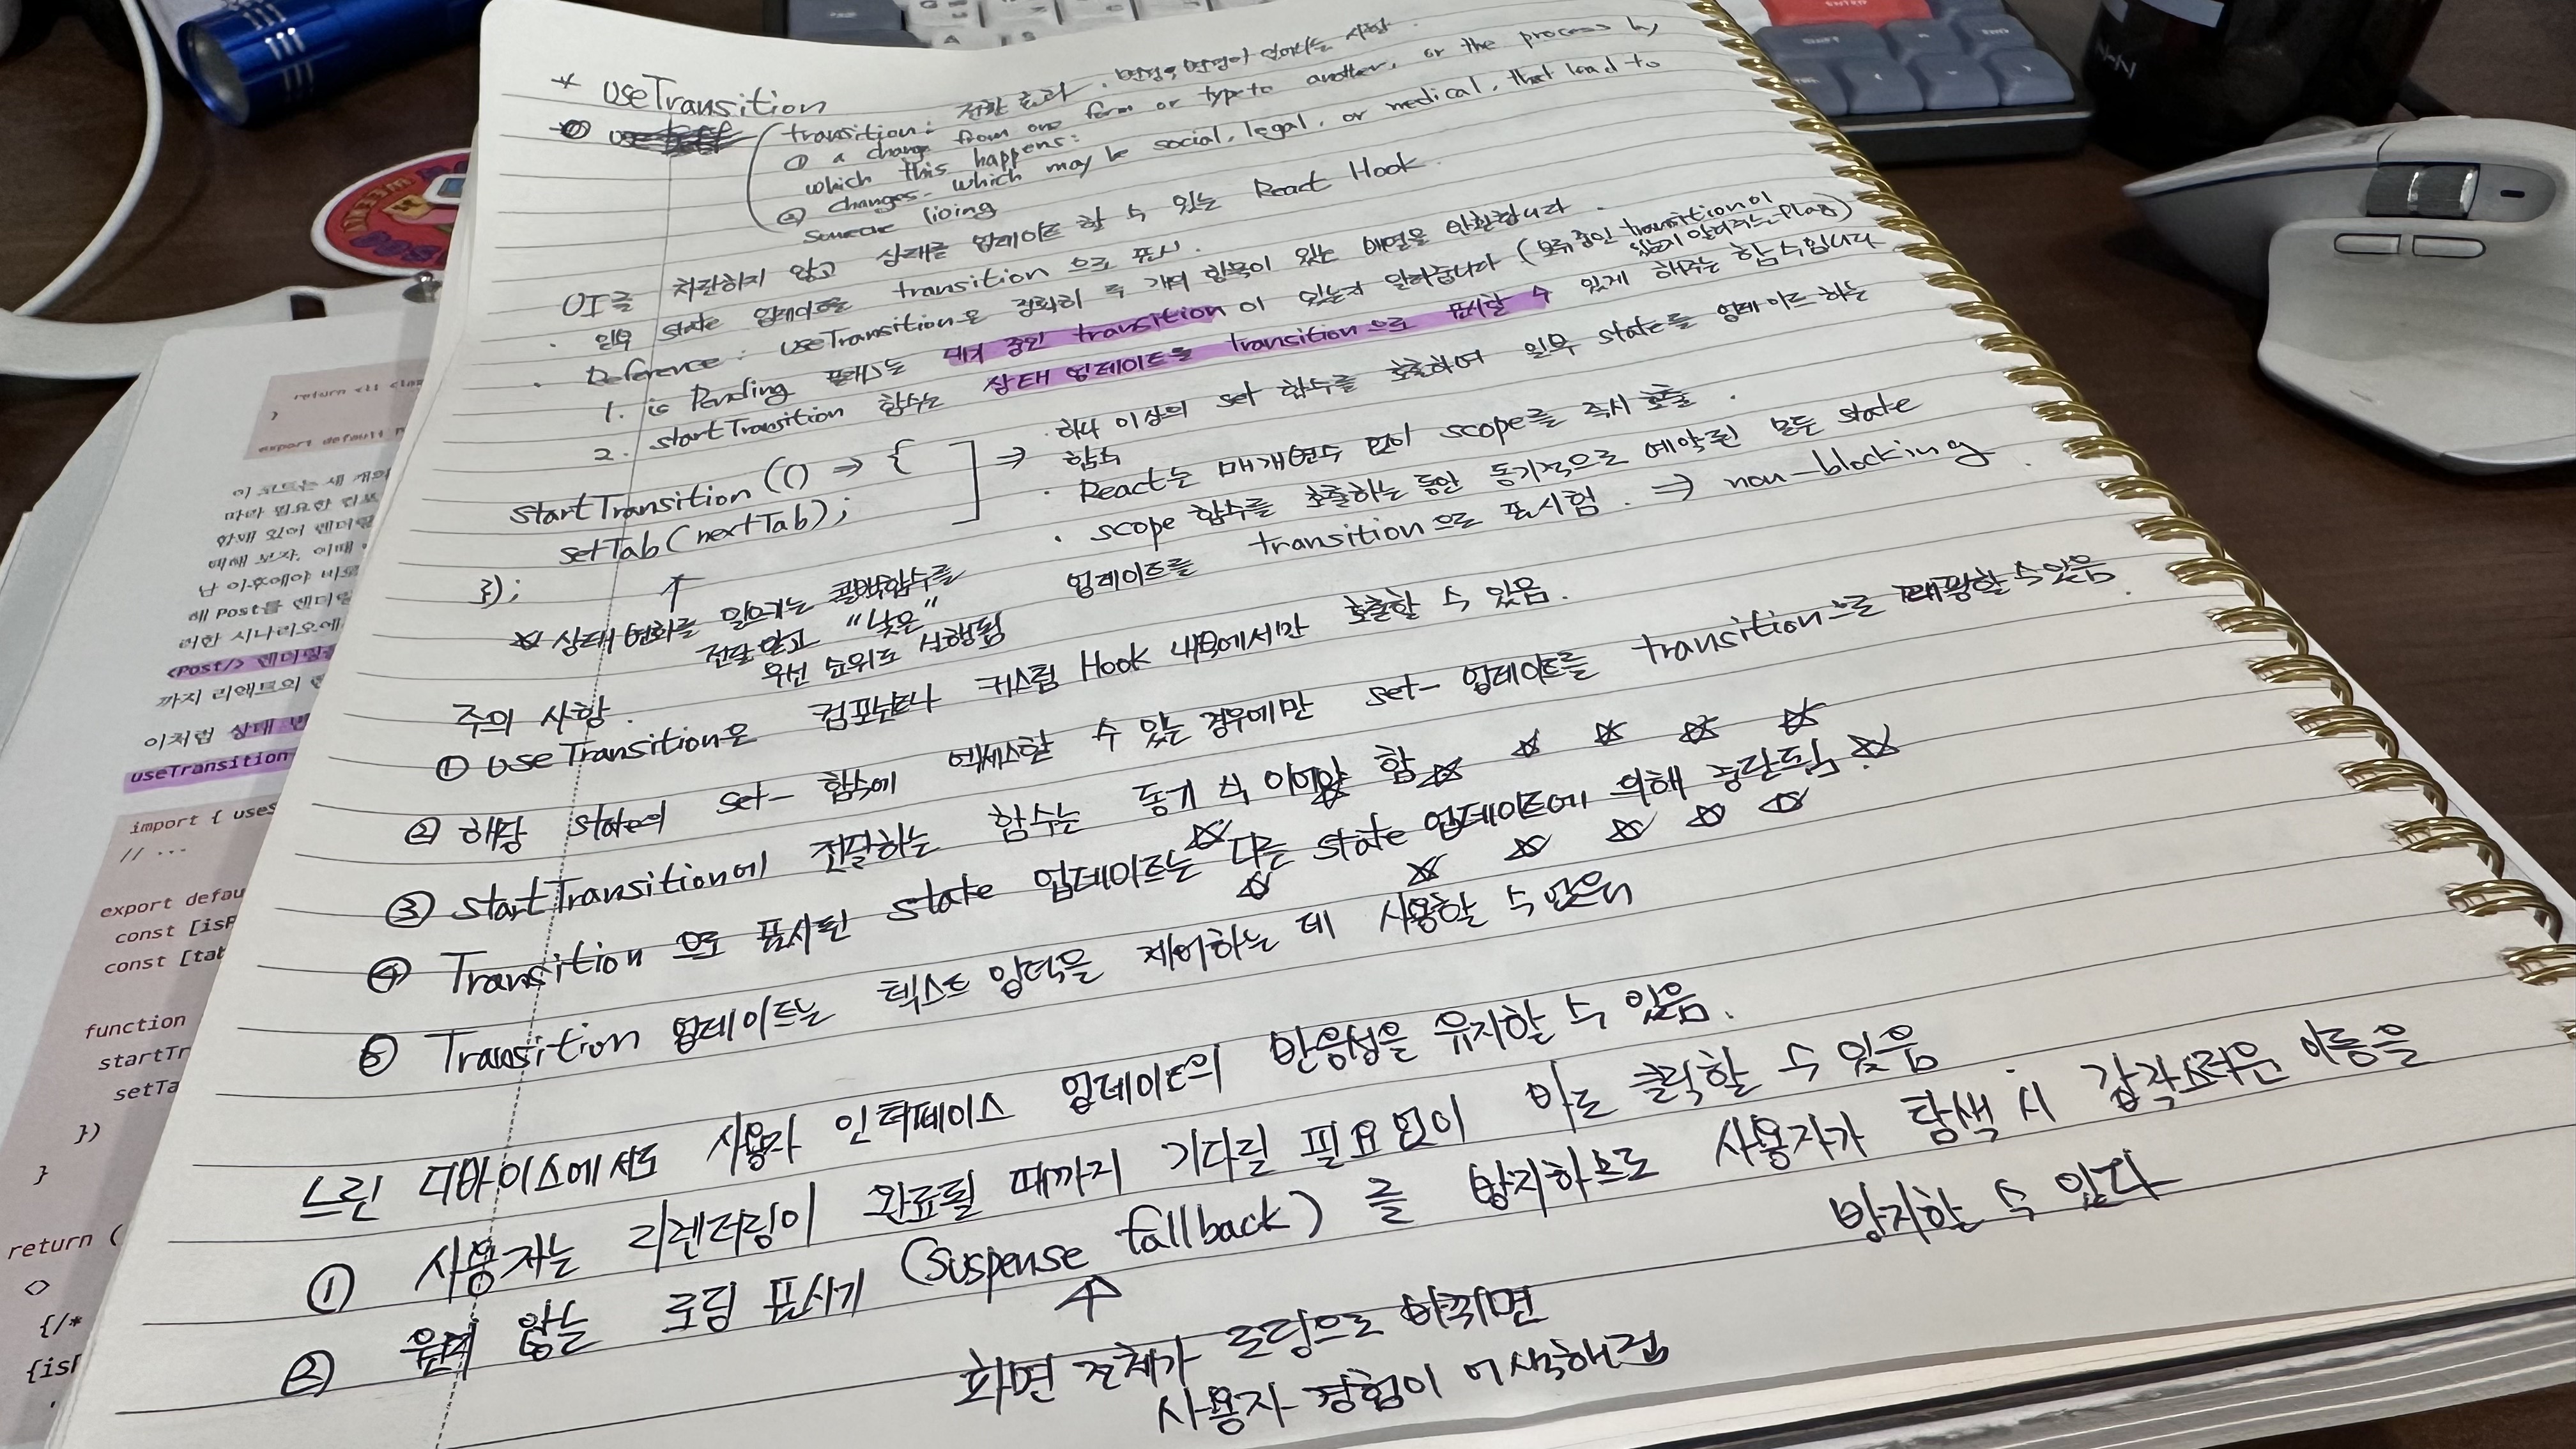 * useTransition
(transition: 전환 효과, 변경, 변경이 일어나는 사항.
① a change from one form or type to another, or the process by
which this happens:
② changes- which may be social, legal, or medical, that lead to
someone living
UI를 차단하지 않고 상태를 업데이트 할 수 있는 React Hook
· 일부 state 업데이트를 transition 으로 표시.
· Reference: useTransition은 정확히 두 개의 항목이 있는 배열을 반환합니다.
1. is Pending 플래그는 대기 중인 transition이 있는지 알려줍니다 (보류 중인 transition이
있는지 알려주는 flag)
2. startTransition 함수는 상태 업데이트를 transition으로 표시할 수 있게 해주는 함수입니다
startTransition(() => {
setTab(nextTab);
});
⇒ · 하나 이상의 set 함수를 호출하여 일부 state를 업데이트 하는
함수
· React는 매개변수 없이 scope를 즉시 호출.
· scope 함수를 호출하는 동안 동기적으로 예약된 모든 state
업데이트를 transition으로 표시함. ⇒ non-blocking
☆ 상태 변화를 일으키는 콜백함수를
전달 받고 "낮은"
우선 순위로 실행됨
주의 사항.
① useTransition은 컴포넌트나 커스텀 Hook 내부에서만 호출할 수 있음.
② 해당 state의 set- 함수에 액세스할 수 있는 경우에만 set- 업데이트를 transition으로 래핑할 수 있음.
③ startTransition에 전달하는 함수는 동기 식 이어야 함
④ Transition 으로 표시된 state 업데이트는 다른 state 업데이트에 의해 중단됨.
⑤ Transition 업데이트는 텍스트 입력을 제어하는 데 사용할 수 없음
느린 디바이스에서도 사용자 인터페이스 업데이트의 반응성을 유지할 수 있음.
① 사용자는 리렌더링이 완료될 때까지 기다릴 필요 없이 바로 클릭할 수 있음
② 원치 않는 로딩 표시기 (suspense fallback) 를 방지하므로 사용자가 탐색 시 갑작스러운 이동을
방지할 수 있다
화면 전체가 로딩으로 바뀌면
사용자 경험이 어색해짐
return <li clas
}
export default P
이 코드는 세 개의
따라 필요한 컴포
함돼 있어 렌더링
해 Post를 렌더링
러한 시나리오에
<Post/> 렌더링
까지 리액트의 렌
이처럼 상태 변
useTransition
import { useS
// ...
export defau
const [isP
const [tab
function
startTr
setTa
})
}
return (
<>
{/*
{isP